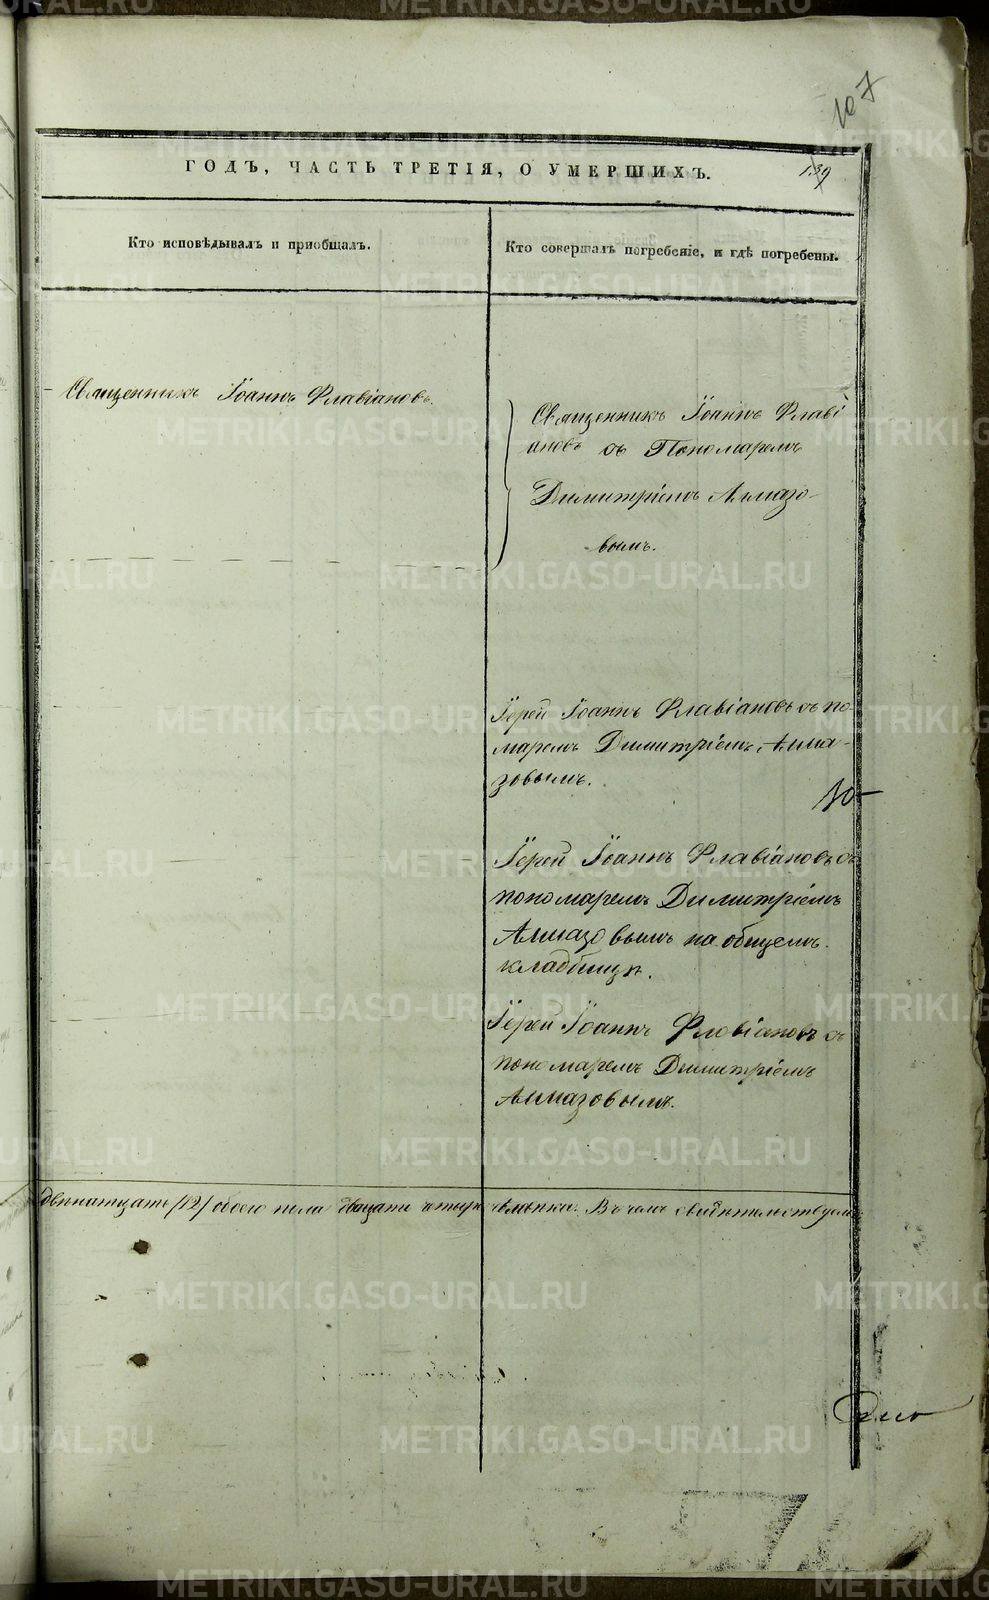 107
ГОДЪ, ЧАСТЬ ТРЕТІЯ, О УМЕРШИХЪ.
139
Кто исповѣдывалъ и пріобщалъ.
Кто совершалъ погребеніе, и гдѣ погребены.
Священникъ Іоаннъ Флавіановъ.
Священникъ Іоаннъ Флаві
ановъ съ Пономаремъ
Димитріемъ Алмазо-
вымъ.
Іерей Іоаннъ Флавіановъ съ по-
маремъ Димитріемъ Алма-
зовымъ.
Іерей Іоаннъ Флавіановъ съ
пономаремъ Димитріемъ
Алмазовымъ на общемъ
кладбищѣ.
Іерей Іоаннъ Флавіановъ съ
пономаремъ Димитріемъ
Алмазовымъ.
двенатцать /12/ обоего пола двацати четыре человѣка. Въ чемъ свидѣтельствуемъ
METRIKI.GASO-URAL.RU